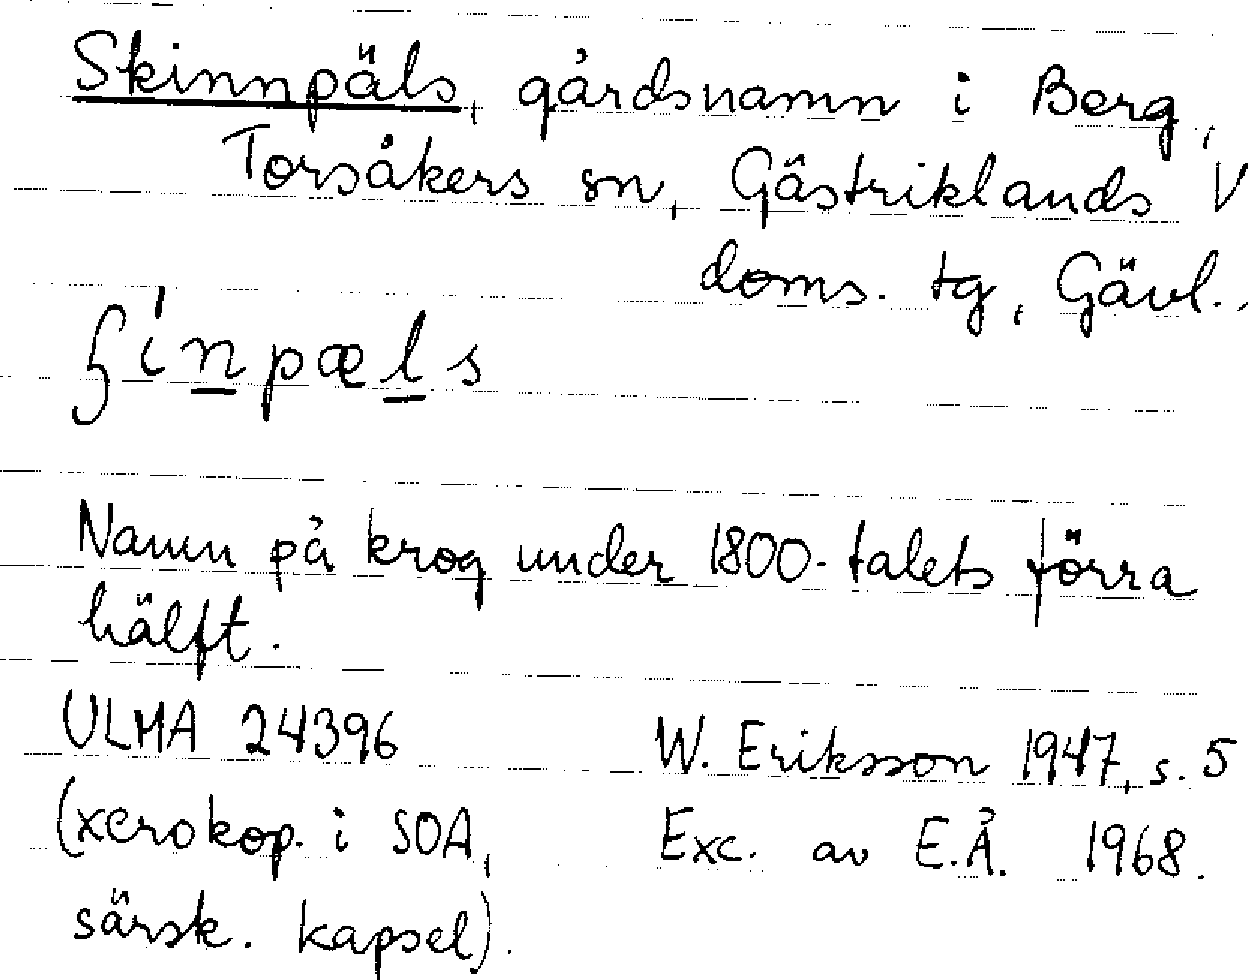 Skinnpäls, gårdsnamn i Berg,
Torsåkers sn, Gästriklands V
doms. tg, Gävl.
ʃínpæls
Namn på krog under 1800-talets förra
hälft.
ULMA 24396 W. Eriksson 1947, s. 5
(xerokop. i SOA, Exc. av E.Å. 1968.
särsk. kapsel).